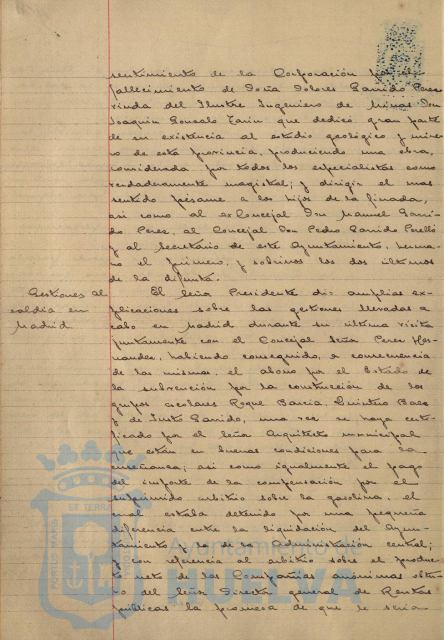 sentimiento de la Corporación por el
fallecimiento de Doña Dolores Garrido Perez
viuda del Ilustre Ingeniero de Minas Don
Joaquin Gonzalo Tarin que dedicó gran parte
de su existencia al estudio geológico y mine-
ro de esta provincia, produciendo una obra,
considerada por todos los especialistas como
verdaderamente magistral; y dirigir el mas
sentido pésame a los hijos de la finada,
asi como al exConcejal Don Manuel Garri-
do Perez, al Concejal Don Pedro Garrido Perelló
y al Secretario de este Ayuntamiento, herma-
no el primero, y sobrinos los dos últimos
de la difunta.
Gestiones Al
caldía en
Madrid
El Señor Presidente dió amplias ex-
plicaciones sobre las gestiones llevadas a
cabo en Madrid durante su última visita
juntamente con el Concejal Señor Perez Her-
nandez, habiendo conseguido, a consecuencia
de las mismas, el abono por el Estado de
la subvención por la construcción de los
grupos escolares Roque Barcia, Quintero Baez
y de Justo Garrido, una vez se haya certi-
ficado por el Señor Arquitecto municipal
que están en buenas condiciones para la
enseñanza; asi como igualmente el pago
del importe de la compensación por el
suprimido arbitrio sobre la gasolina, el
cual estaba detenido por una pequeña
diferencia entre la liquidación del Ayun-
tamiento y la de la Administración central;
y con referencia al arbitrio sobre el produc-
to neto de las Compañias anónimas obtu-
vo del Señor Director general de Rentas
públicas la promesa de que le seria
Ayuntamiento de
HUELVA